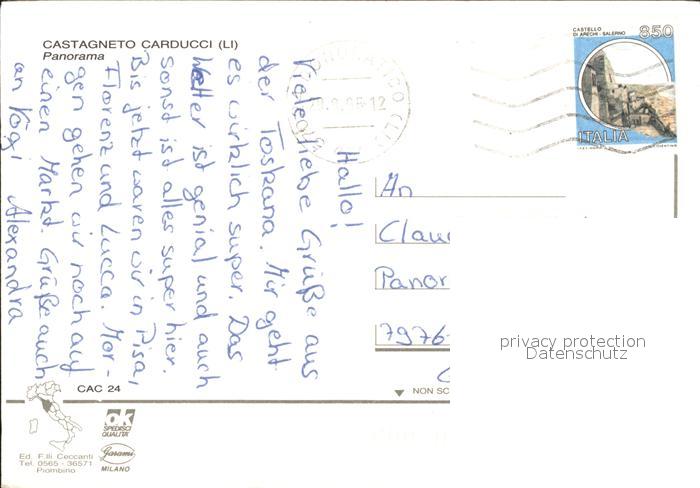 CASTAGNETO CARDUCCI (LI)
Panorama
CASTELLO
DI ARECHI - SALERNO
850
ITALIA
Hallo!
Viele liebe Grüße aus
der Toskana. Mir geht
es wirklich super. Das
Wetter ist genial und auch
sonst ist alles super hier.
Bis jetzt waren wir in Pisa,
Florenz und Lucca. Mor-
gen gehen wir noch auf
einen Markt. Grüße auch
an
Alexandra
An
Clau
Panor
7976
privacy protection
Datenschutz
CAC 24
NON SC
OK
SPEDISCI
QUALITA'
Garami
MILANO
Ed. F.lli Ceccanti
Tel. 0565 - 36571
Piombino